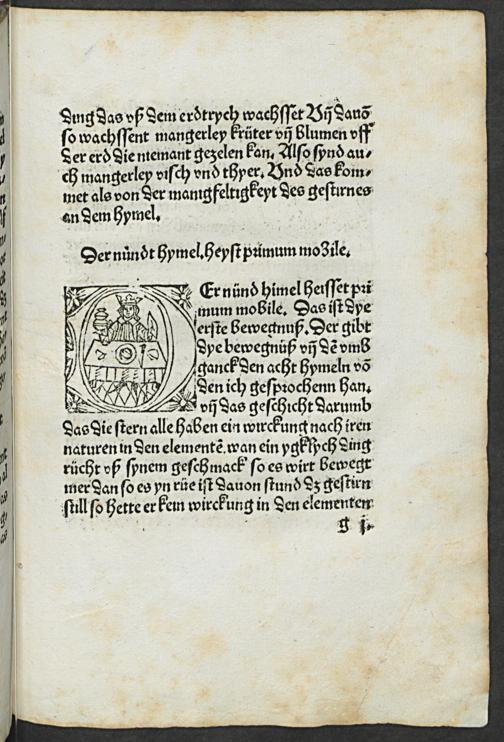 ding das vß dem erdtrych wachsset Vn̄ dauō
so wachssent mangerley krüter vn̄ blumen vff
der erd die niemant gezelen kan. Also synd au⸗
ch mangerley visch vnd thyer. Vnd das kom⸗
met als von der manigfeltigkeyt des gestirnes
an dem hymel.
Der nündt hymel.heyst primum mobile.
Er nünd himel heisset pri
mum mobile. Das ist dye
erste bewegnuß. Der gibt
dye bewegnüß vn̄ dē vmb
ganck den acht hymeln vō
den ich gesprochenn han.
vn̄ das geschicht darumb
das die stern alle haben ein wirckung nach iren
naturen in den elementē. wan ein ygklych ding
rücht vß synem geschmack so es wirt bewegt
mer dan so es yn rüe ist dauon stund dz gestirn
still so hette er kein wirckung in den elementen
g j.